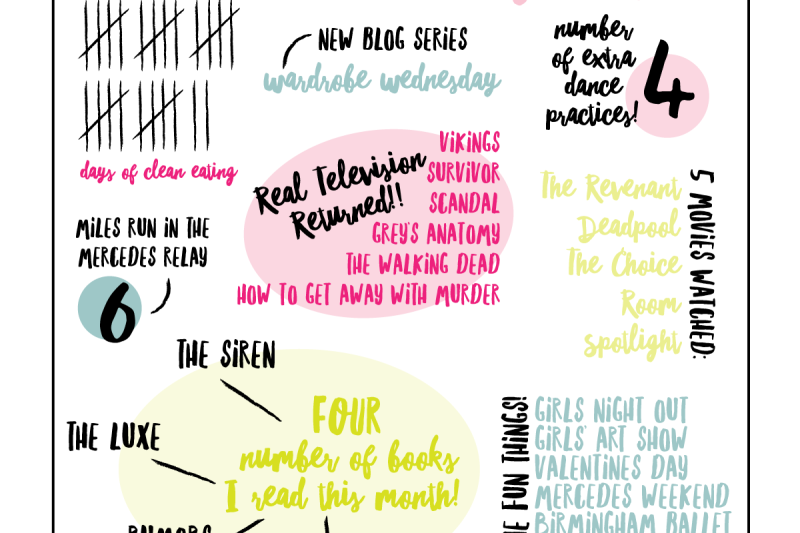 NEW BLOG SERIES
wardrobe wednesday
number
of extra
dance
practices!
4
days of clean eating
Real Television
Returned!!
VIKINGS
SURVIVOR
SCANDAL
GREY'S ANATOMY
THE WALKING DEAD
HOW TO GET AWAY WITH MURDER
5 MOVIES WATCHED:
The Revenant
Deadpool
The Choice
Room
spotlight
MILES RUN IN THE
MERCEDES RELAY
6
THE SIREN
THE LUXE
FOUR
number of books
I read this month!
RUMORS
FUN THINGS!
GIRLS NIGHT OUT
GIRLS' ART SHOW
VALENTINES DAY
MERCEDES WEEKEND
BIRMINGHAM BALLET